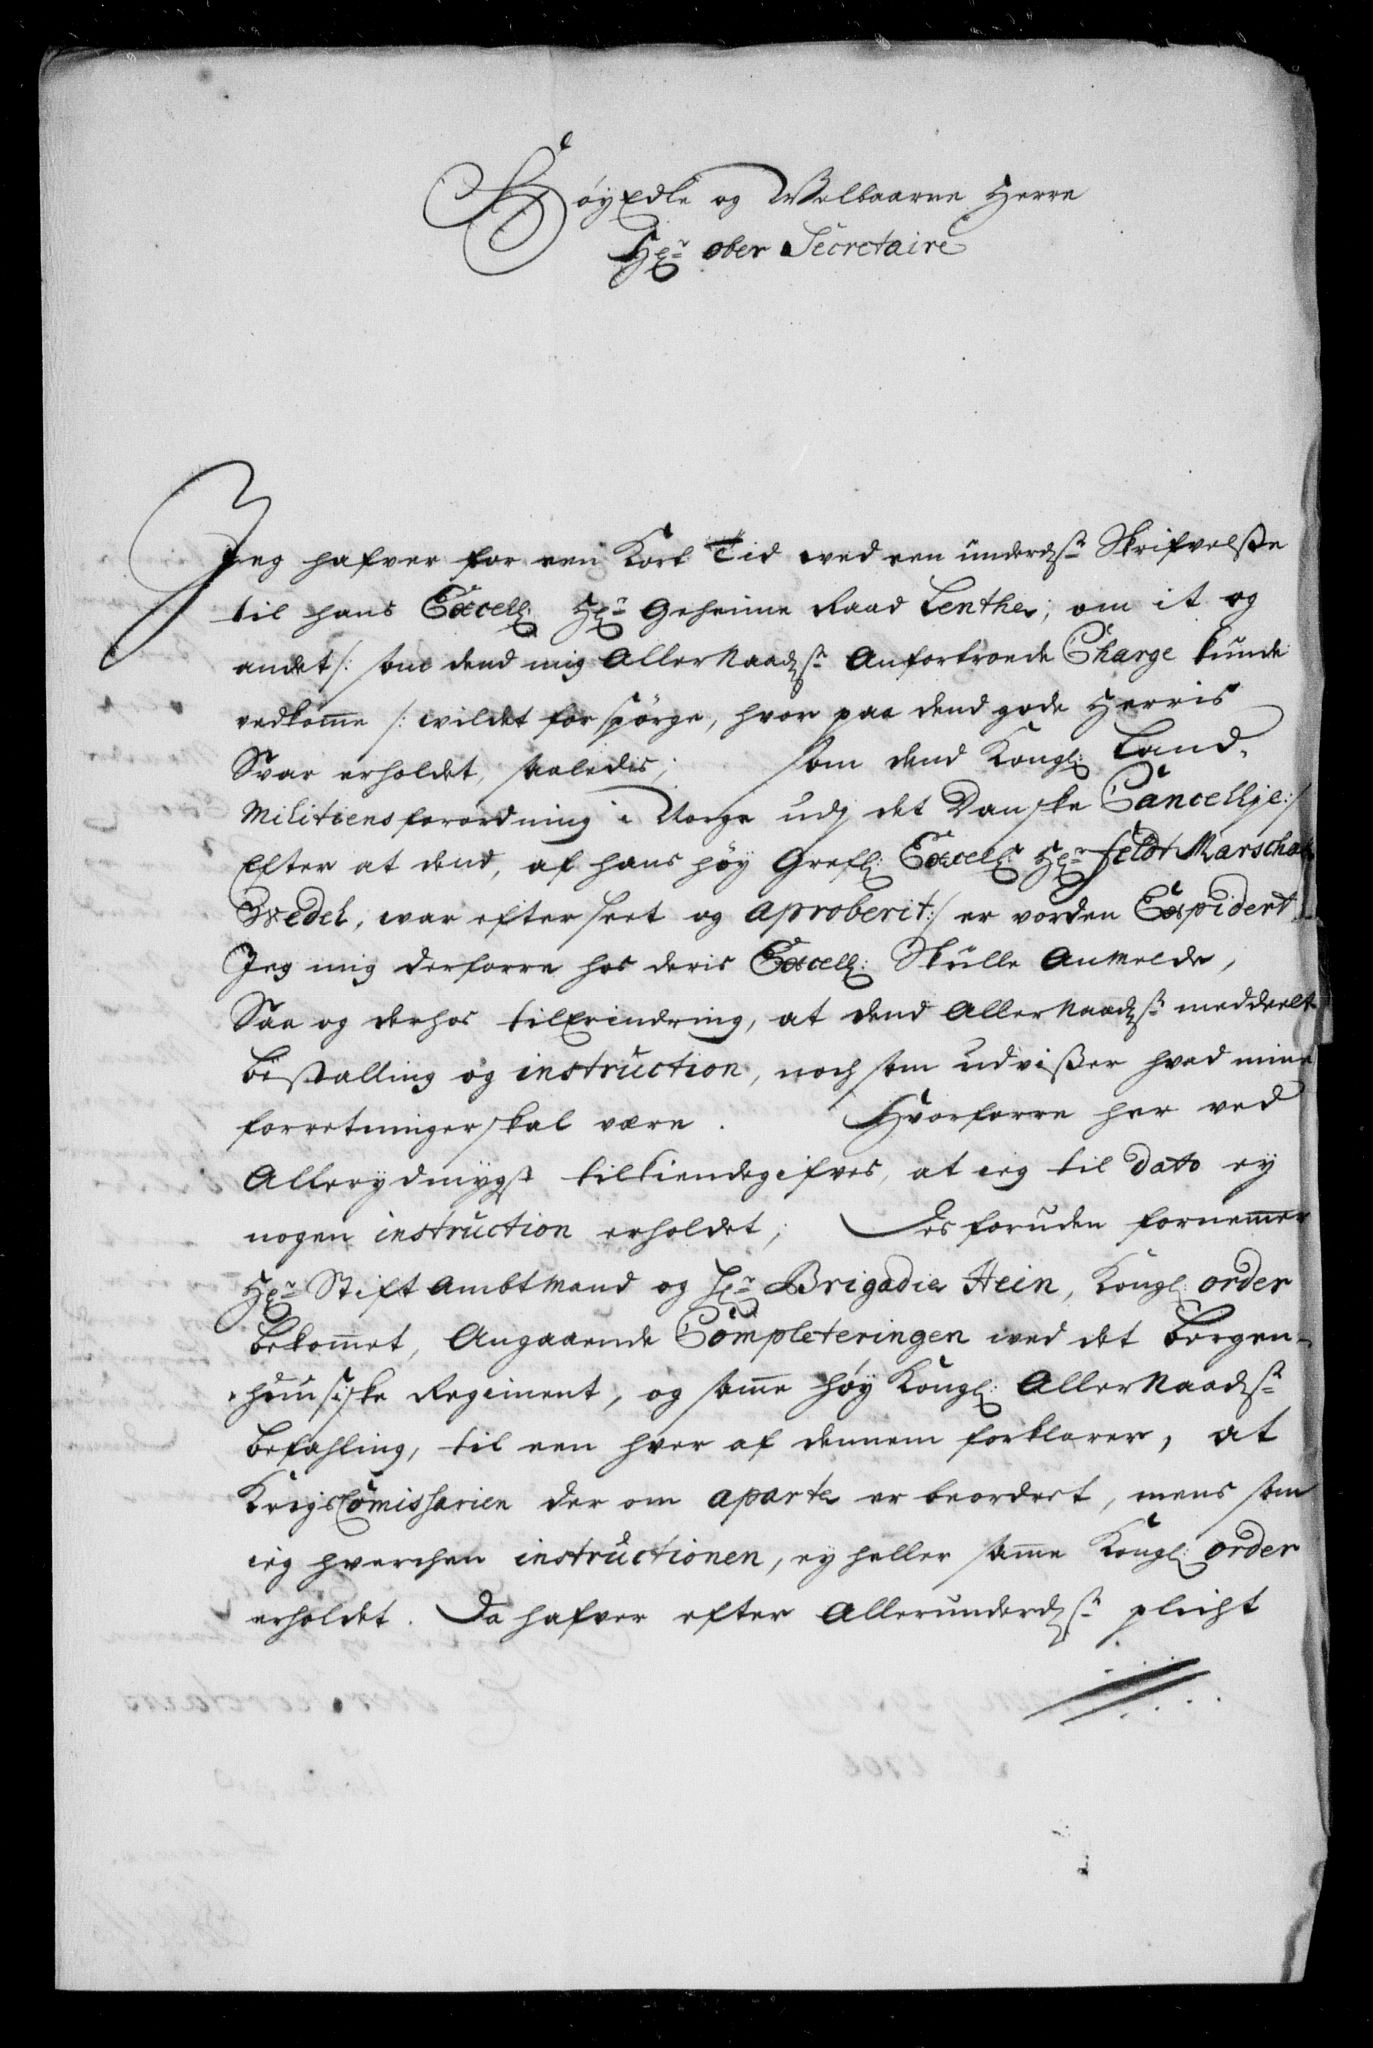 HøyEdle og Velbaarne Herre
Hr: ober Secretaire
Jeg hafver for een Kort Tid wed een underdst Skrifvelße
til hans Excell: Hr: Geheime Raad Lenthe, om it og
andet /: som dend mig AllerNaadst Anfortroede Charge kunde
vedkom̄e :/ wildet forspørge, hvor paa dend gode Herris
Svar erholdet, saaledis; som dend Kongl: Land-
Militiens forordning i Norge udj det Danske Cancellje :/
Efter at dend, af hans høy Grefl: Excell: Hr: feldt Marschal
Wedel, war efterseet og aproberit :/ er vorden Expidert
Jeg mig derforre hos deris Excell: Skulle Anmelde,
Saa og derhos tilErindring, at dend AllerNaadst meddeelte
bestalling og instruction, noch som udvißer hvad mine
forretninger skal være. Hvorforre her ved
Allerydmygst tilkiendegifves, at ieg til dato ey
nogen instruction erholdet; Desforuden fornem̄er
Hr: StiftAmbtmand og Hr: Brigadie Hein, Kongl: order
bekom̄et, Angaaende Completeringen wed det bergen-
huusiske Regiment, og sam̄e høy Kongl: AllerNaadst
befahling, til een hver af dennem forklarer, at
KrigsCom̄issarien der om aparte er beordert, mens som
ieg hverchen instructionen, ey heller sam̄e Kongl: order
erholdet. Da hafver efter Allerunderdst plicht